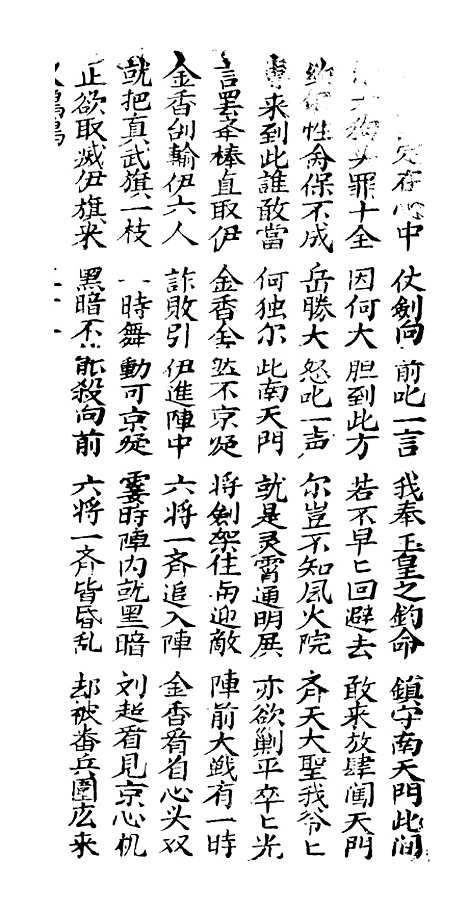 定在心中 仗劍向前叱一言 我奉玉皇之鈞命 鎮守南天門此间
罪十全 因何大胆到此方 若不早匕回避去 敢来放肆闖天門
性命保不成 岳勝大怒叱一声 尔豈不知風火院 齐天大聖我爷匕
来到此誰敢當 何独尔此南天門 就是灵霄通明展 亦欲剿平卒匕光
言罢举棒直取伊 金香全然不京疑 将劍架住両迎敵 陣前大战有一時
金香刣輸伊六人 詐敗引伊進陣中 六将一齐追入陣 金香看自心头双
就把真武旗一枝 一時舞動可京疑 霎時陣内就黑暗 刘超看見京心机
正欲取滅伊旗来 黑暗不能殺向前 六将一齐皆昏乱 却被番兵圍庅来